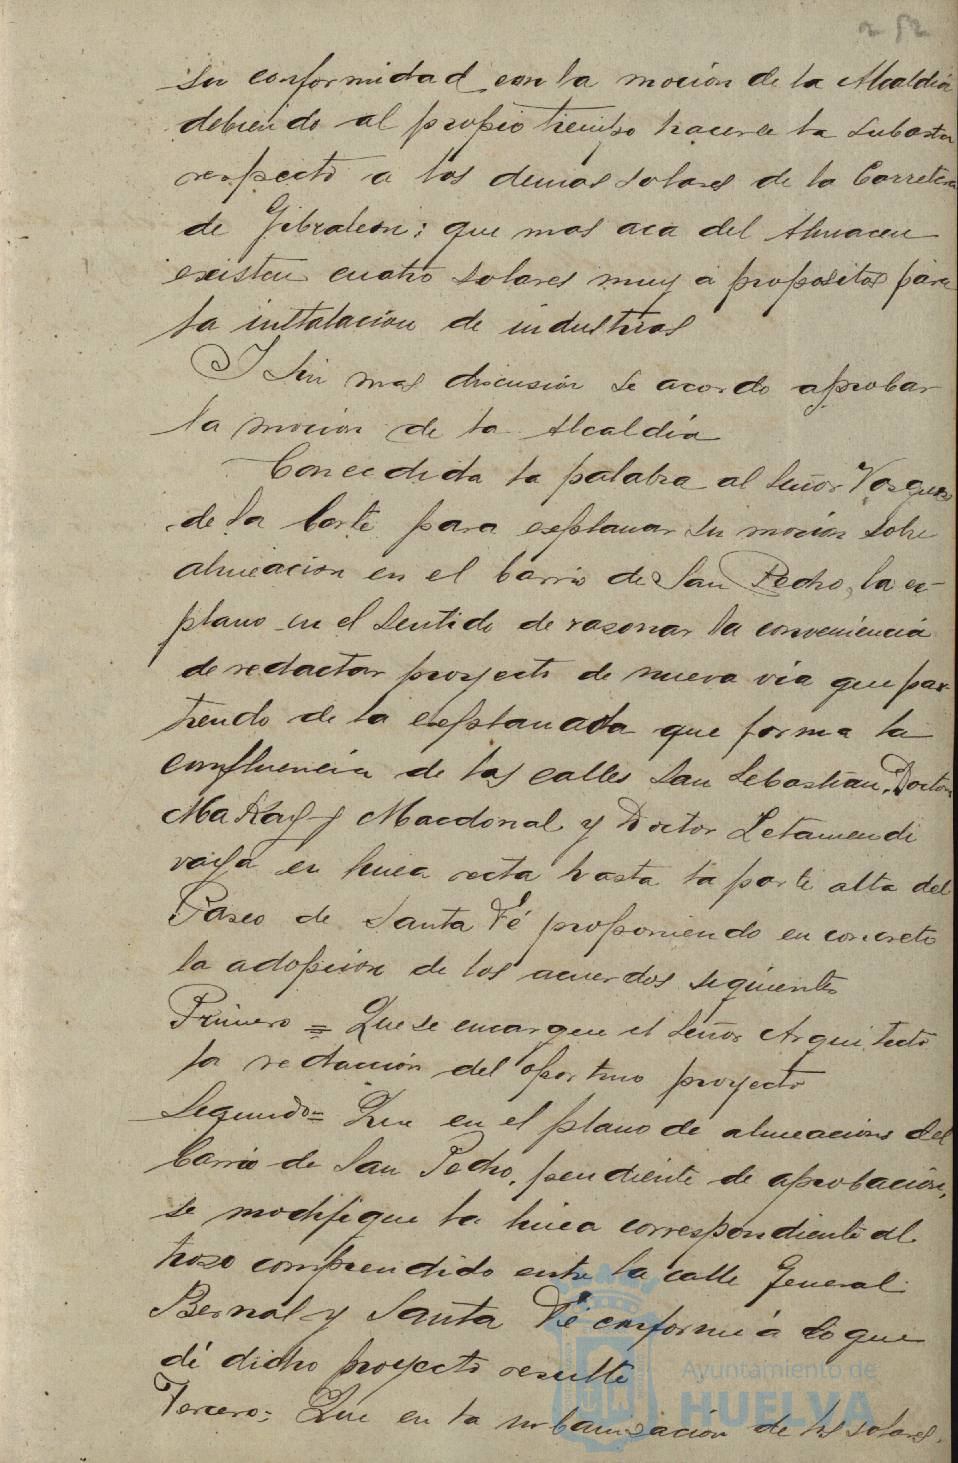 252
su conformidad con la moción de la Alcaldía
debiendo al propio tiempo hacerse la subasta
respecto a los demas solares de la Carretera
de Gibraleon: que mas aca del Almacen
existen cuatro solares muy a propositos para
la instalación de industrias
Y sin mas discusión se acordo aprobar
la moción de la Alcaldía
Concedida la palabra al Señor Vazquez
de la Corte para explanar su moción sobre
alineacion en el barrio de San Pedro, la ex-
plano en el sentido de razonar la conveniencia
de redactar proyecto de nueva vía que par-
tiendo de la explanada que forma la
confluencia de las calles San Sebastian, Doctor
MaKay y Macdonal y Doctor Letamendi
vaya en linea recta hasta la parte alta del
Paseo de Santa Fé proponiendo en concreto
la adopcion de los acuerdos siguientes
Primero = Que se encargue el Señor Arquitecto
la redacción del oportuno proyecto
Segundo = Que en el plano de alineacions del
barrio de San Pedro, pendiente de aprobación,
se modifique la linea correspondiente al
trozo comprendido entre la calle General
Bernal y Santa Fé conforme á lo que
de dicho proyecto resulte
Tercero: Que en la urbanización de los solares
Ayuntamiento de
HUELVA